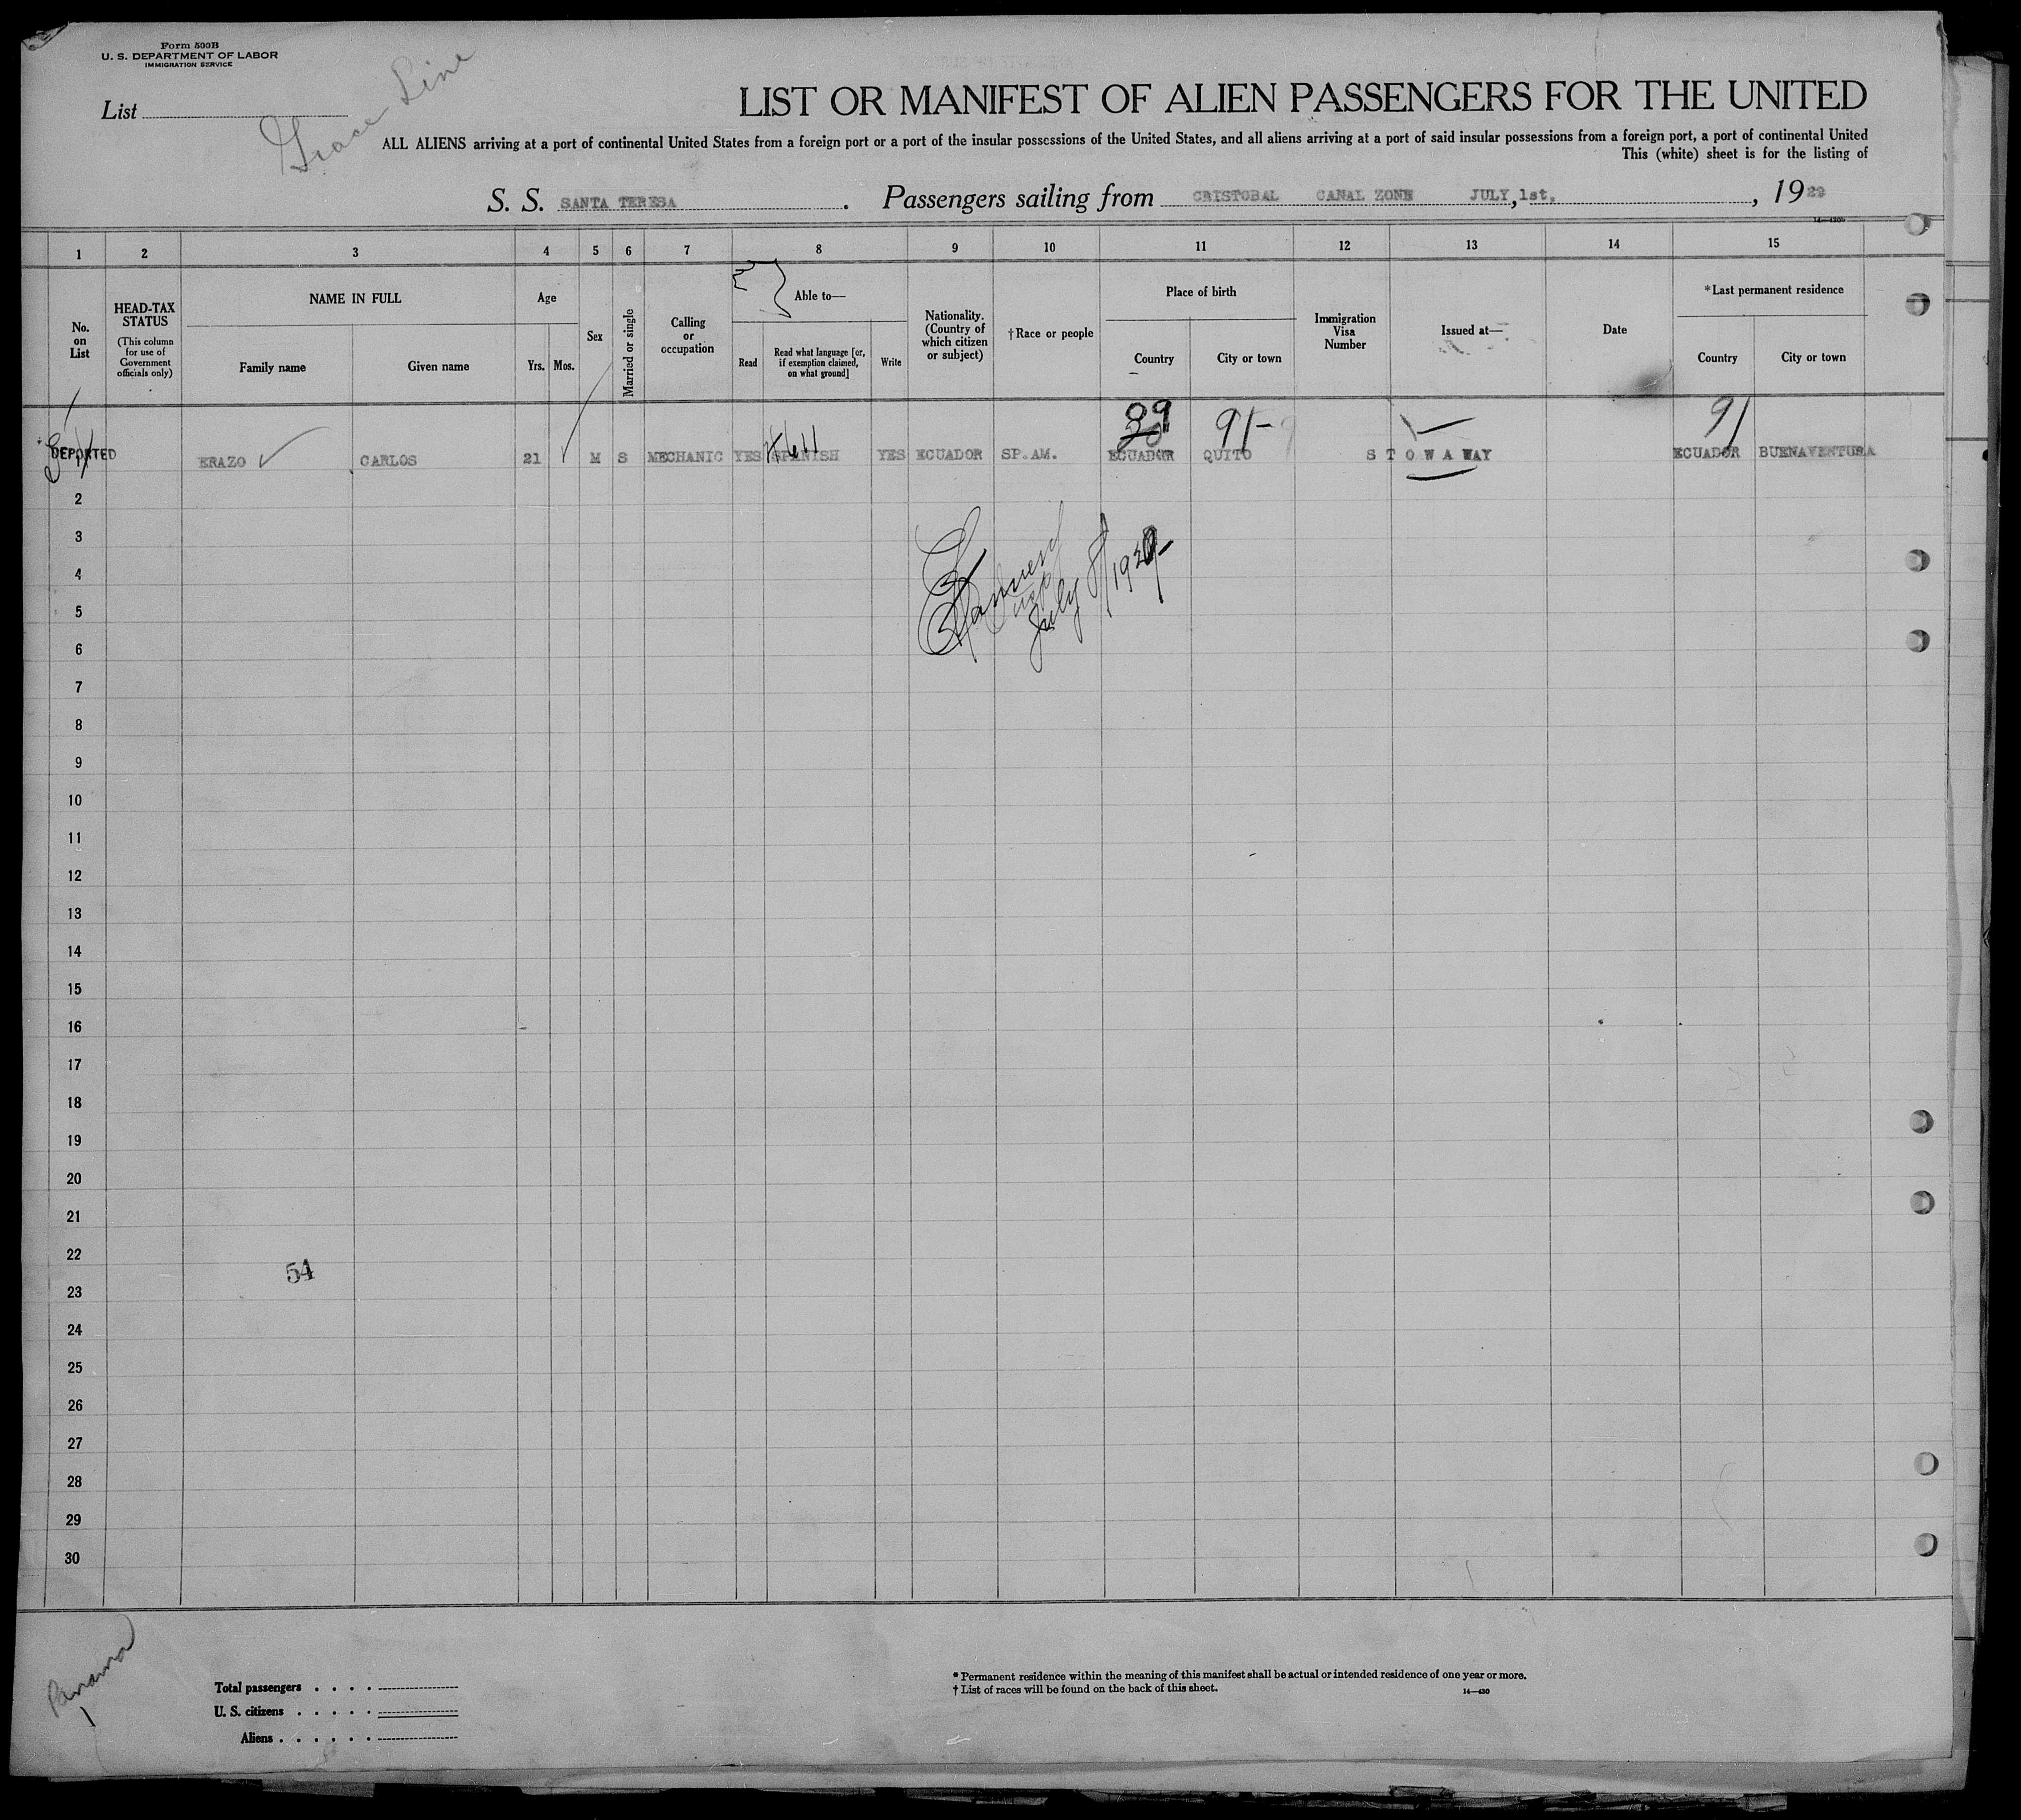 Form 500B
U. S. DEPARTMENT OF LABOR
IMMIGRATION SERVICE
List
Grace Line
LIST OR MANIFEST OF ALIEN PASSENGERS FOR THE UNITED
ALL ALIENS arriving at a port of continental United States from a foreign port or a port of the insular possessions of the United States, and all aliens arriving at a port of said insular possessions from a foreign port, a port of continental United
This (white) sheet is for the listing of
S. S. SANTA TERESA . Passengers sailing from CRISTOBAL CANAL ZONE JULY, 1st, , 1929
14—430b
1 2 3 4 5 6 7 8 9 10 11 12 13 14 15
No. on List
HEAD-TAX STATUS
(This column for use of Government officials only)
NAME IN FULL
Family name Given name
Age
Yrs. Mos.
Sex
Married or single
Calling or occupation
Able to—
Read
Read what language [or, if exemption claimed, on what ground]
Write
Nationality. (Country of which citizen or subject)
†Race or people
Place of birth
Country City or town
Immigration Visa Number
Issued at—
Date
*Last permanent residence
Country City or town
39 91- 91
DEPORTED ERAZO CARLOS 21 M S MECHANIC YES SPANISH YES ECUADOR SP.AM. ECUADOR QUITO S T O W A WAY ECUADOR BUENAVENTURA
2
3
4
5
July 8/1929-
6
7
8
9
10
11
12
13
14
15
16
17
18
19
20
21
22
54
23
24
25
26
27
28
29
30
Panama
Total passengers . . . .
U. S. citizens . . . . .
Aliens . . . . . .
* Permanent residence within the meaning of this manifest shall be actual or intended residence of one year or more.
† List of races will be found on the back of this sheet.
14—430